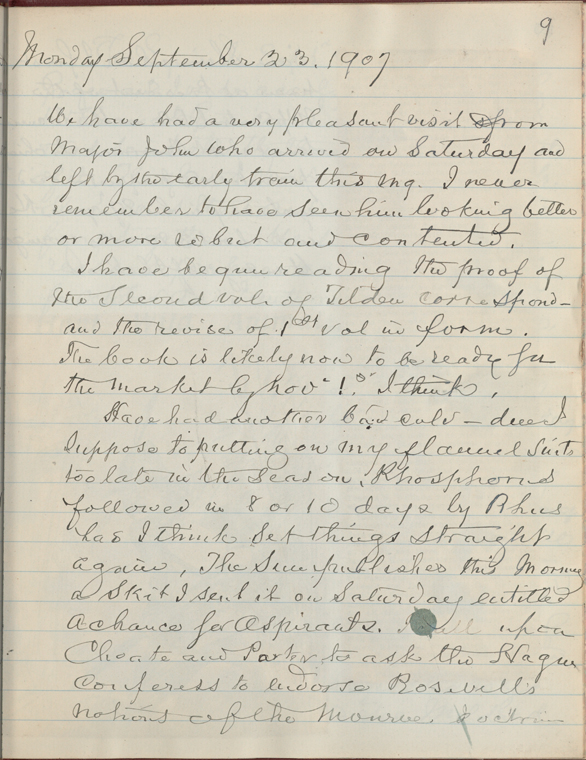 9
Monday September 23. 1907
We have had a very pleasant visit from
Major John who arrived on Saturday and
left by the early train this mg. I never
remember to have seen him looking better
or more robust and contented.
I have begun reading the proof of
the Second vol. of Tilden correspond-
and the revise of 1st vol in form.
The book is likely now to be ready for
the market by Nov. 1. I think.
Have had another bad cold - due I
suppose to putting on my flannel suits
too late in the season. Phosphorus
followed in 8 or 10 days by Rhus
has I think set things straight
again, The Sun publishes this Morning
a Skit I sent it on Saturday entitled
A chance for Aspirants. I call upon
Choate and Porter to ask the Hague
Conferess to endorse Rosevelt's
notions of the Monroe doctrine